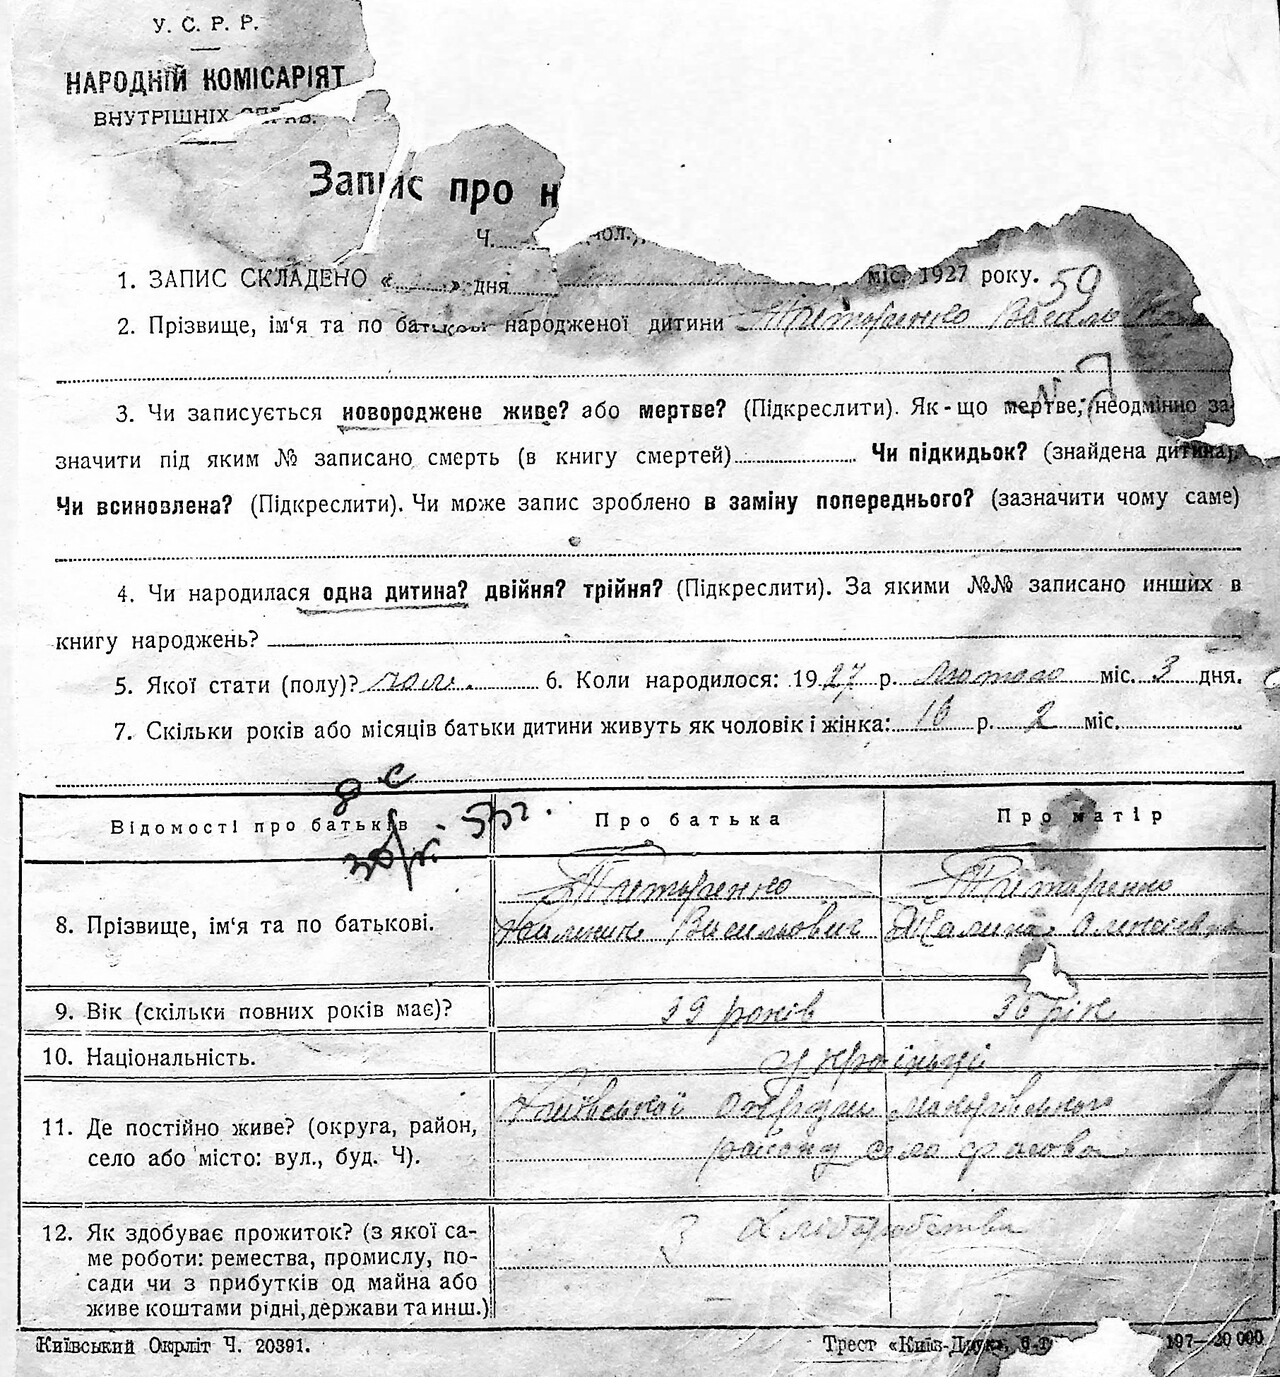 У. С. Р. Р.
НАРОДНІЙ КОМІСАРІЯТ
ВНУТРІШНІХ СПРАВ.
Запис про н
Ч. (чол.),
1. ЗАПИС СКЛАДЕНО « » дня міс. 1927 року. 59
2. Прізвище, ім‘я та по батькові народженої дитини Титаренко Василь
3. Чи записується новороджене живе? або мертве? (Підкреслити). Як-що мертве, неодмінно за-
значити під яким № записано смерть (в книгу смертей) Чи підкидьок? (знайдена дитина),
Чи всиновлена? (Підкреслити). Чи може запис зроблено в заміну попереднього? (зазначити чому саме)
4. Чи народилася одна дитина? двійня? трійня? (Підкреслити). За якими №№ записано инших в
книгу народжень?
5. Якої стати (полу)? чол. 6. Коли народилося: 1927 р. лютого міс. 3 дня.
7. Скільки років або місяців батьки дитини живуть як чоловік і жінка: 16 р. 2 міс.
Відомості про батьків Про батька Про матір
Титаренко Титаренко
8. Прізвище, ім‘я та по батькові. Васильович
9. Вік (скільки повних років має)? 39 років 36 рік
10. Національність. українці
11. Де постійно живе? (округа, район, Київської округи
село або місто: вул., буд. Ч). району село Фасова
12. Як здобуває прожиток? (з якої са- З хліборобства
ме роботи: ремества, промислу, по-
сади чи з прибутків од майна або
живе коштами рідні, держави та инш.)
Київський Окрліт Ч. 20391. Трест «Київ-Друк», 197—20 000